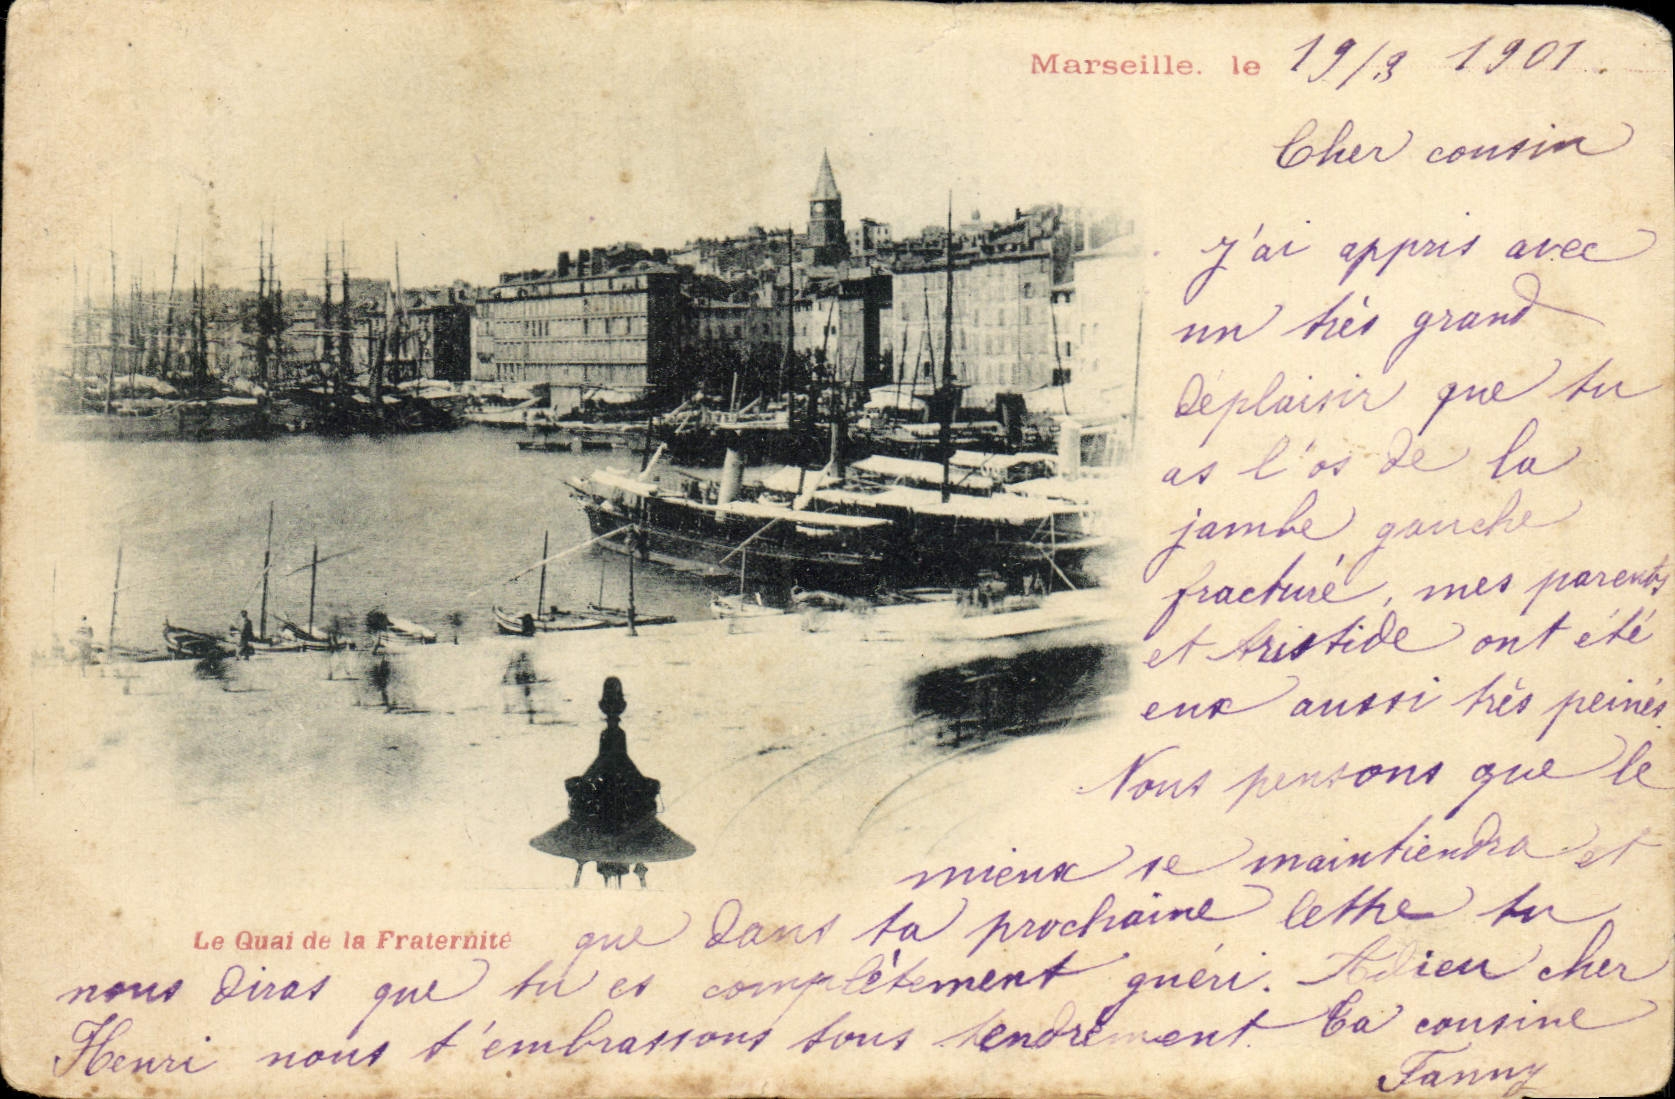 Marseille. le 19/3 1901.
Cher cousin
J'ai appris avec
un très grand
déplaisir que tu
as l'os de la
jambe gauche
fracturé, mes parents
et Aristide ont été
eux aussi très peinés.
Nous pensons que le
mieux se maintiendra et
Le Quai de la Fraternité
que dans ta prochaine lettre tu
nous diras que tu es complètement guéri. Adieu cher
Henri nous t'embrassons tous tendrement. Ta cousine
Fanny